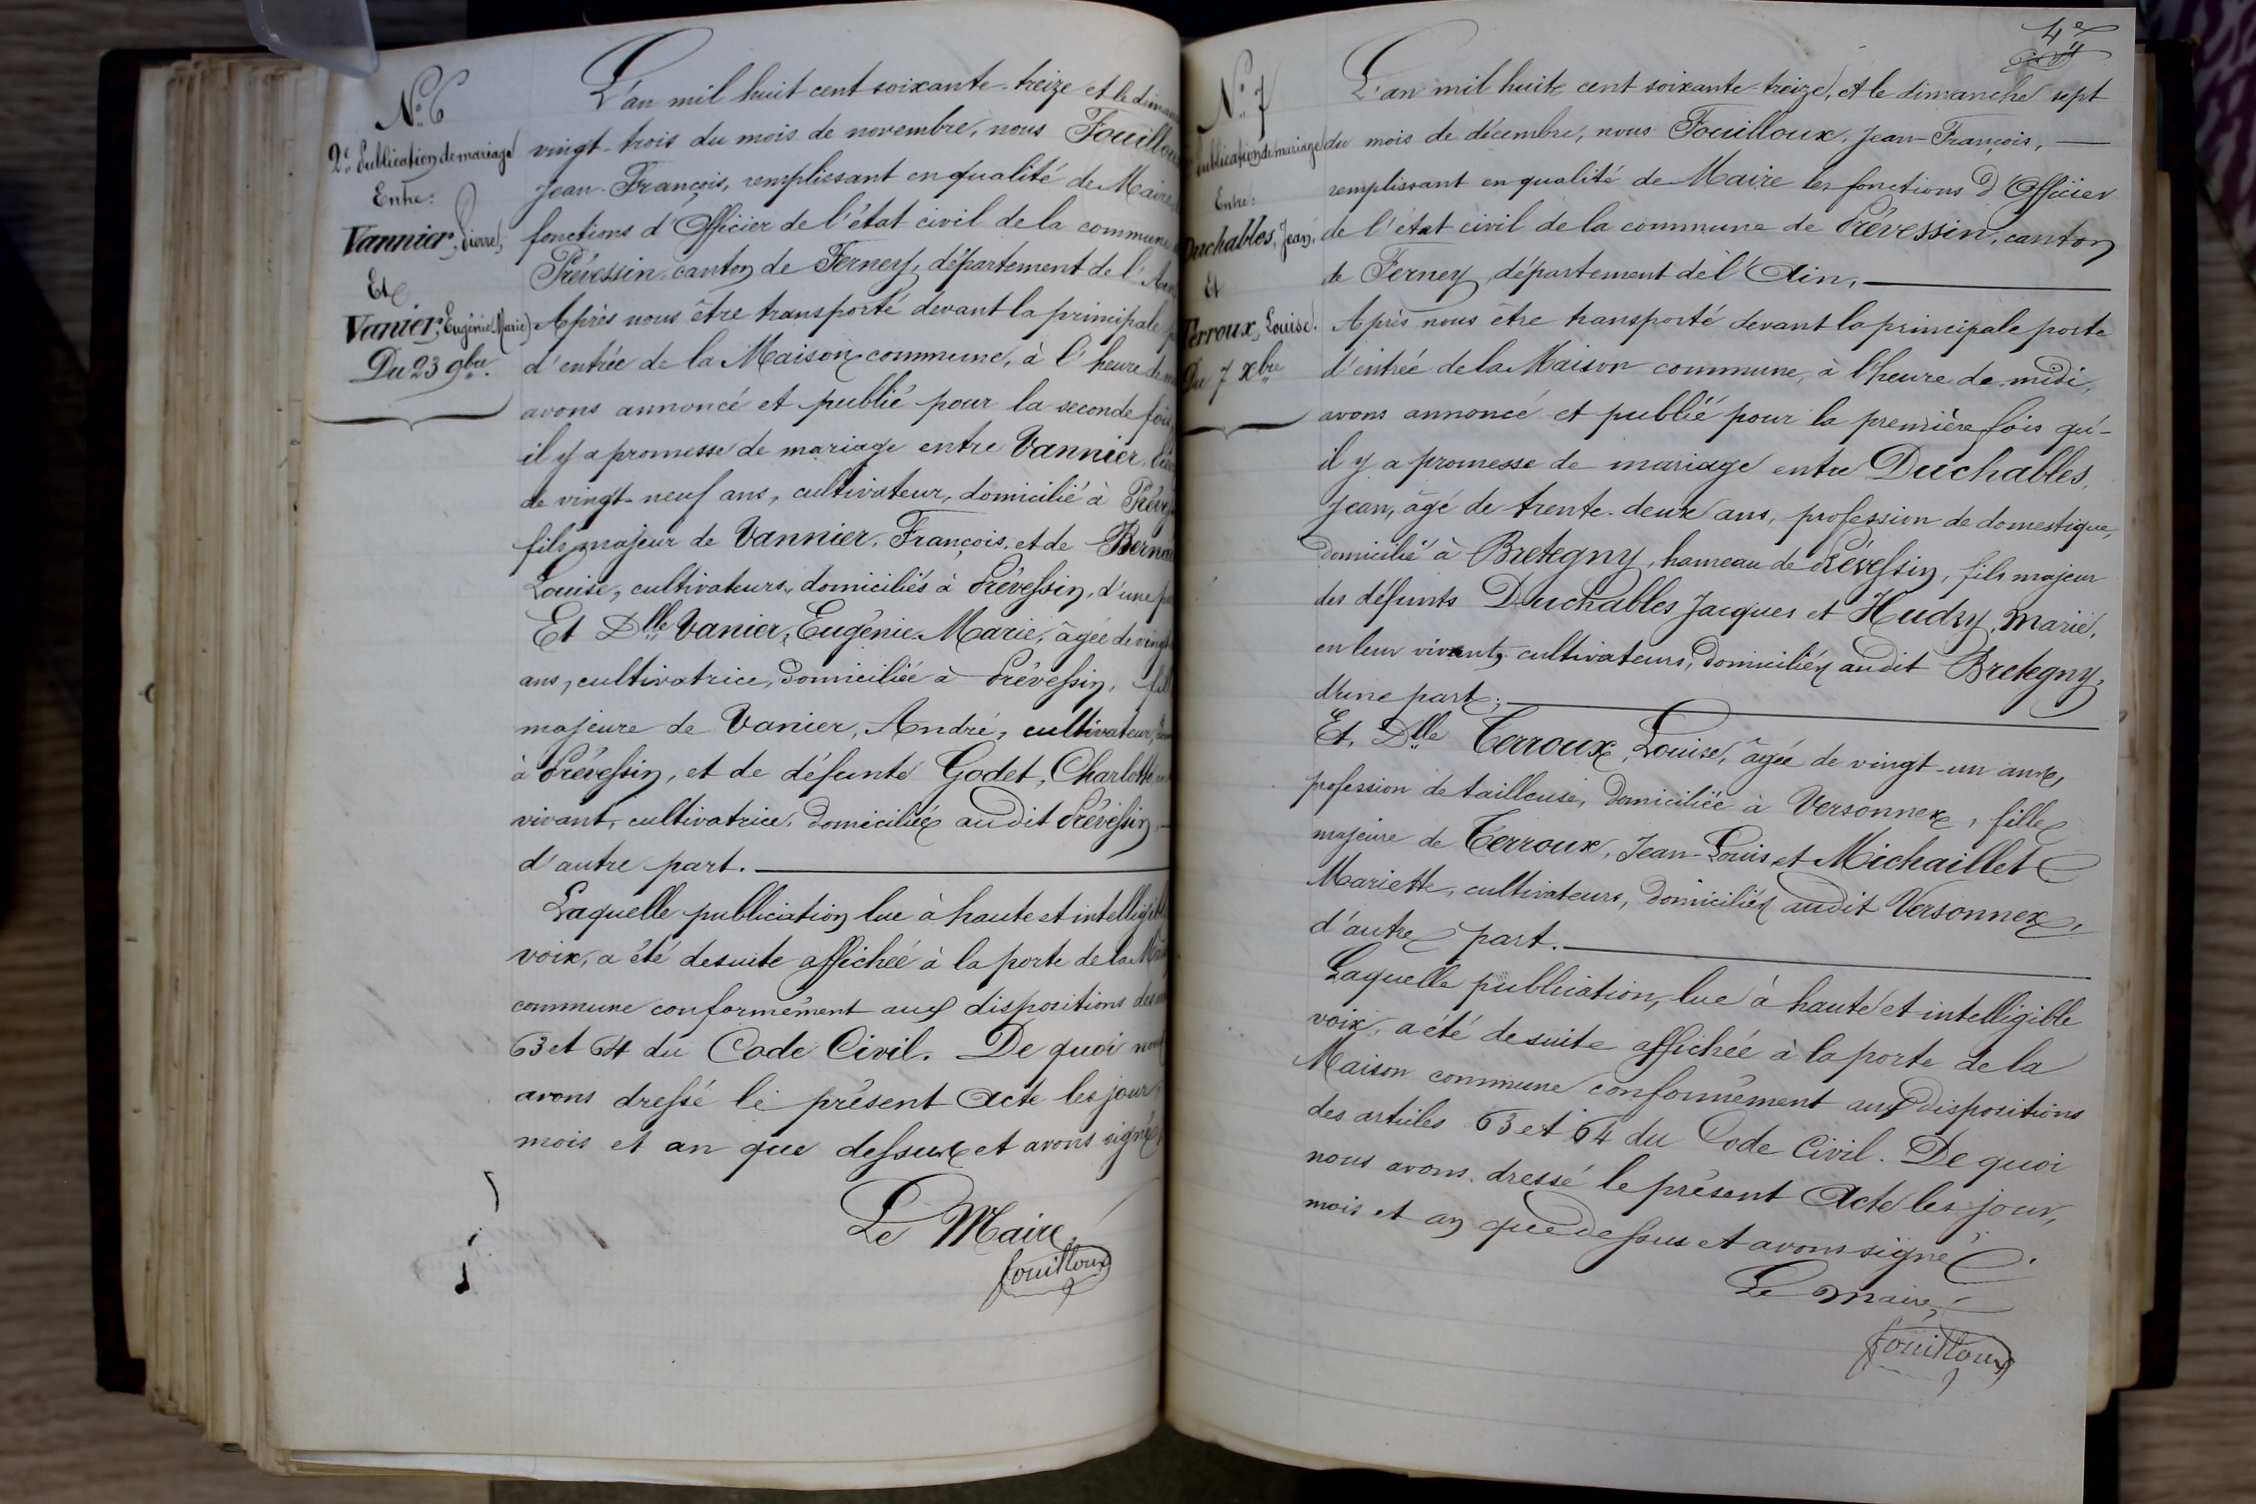 N.° 6
2.e Publication de mariage
Entre:
Vannier, Pierre,
Et
Vanier, Eugénie Marie
Du 23 9bre.
L'an mil huit cent soixante-treize et le
vingt-trois du mois de novembre, nous
Jean-François, remplissant en qualité de Maire
fonctions d'Officier de l'état civil de la commune
Prévessin canton de Ferney, département de l'
Après nous être transporté devant la principale
d'entrée de la Maison commune, à l'heure de
avons annoncé et publié pour la seconde fois
il y a promesse de mariage entre Vannier,
de vingt-neuf ans, cultivateur, domicilié à
fils majeur de Vannier, François, et de
Louise, cultivateurs, domiciliés à Prévessin, d'une
Et Dlle Vanier, Eugénie Marie, âgée de
ans, cultivatrice, domiciliée à Prévessin,
majeure de Vanier, André, cultivateur,
à Prévessin, et de défunte Godet, Charlotte,
vivant, cultivatrice, domiciliée audit Prévessin,
d'autre part.
Laquelle publication lue à haute et
voix, a été desuite affichée à la porte de la
commune conformément aux dispositions des
63 et 64 du Code Civil. De quoi nous
avons dressé le présent Acte les jour
mois et an que dessus et avons signé
Le Maire,
Fouilloux
4e
N.° 7
Publication de mariage
Entre:
Duchables, Jean,
Et
Terroux, Louise.
Du 7 Xbre
L'an mil huit cent soixante-treize, et le dimanche sept
du mois de décembre, nous Fouilloux, Jean-François,
remplissant en qualité de Maire les fonctions d'Officier
de l'état civil de la commune de Prévessin, canton
de Ferney, département de l'Ain,
Après nous être transporté devant la principale porte
d'entrée de la Maison commune, à l'heure de midi,
avons annoncé et publié pour la première fois qu'-
il y a promesse de mariage entre Duchables,
Jean, âgé de trente-deux ans, profession de domestique,
domicilié à Bretegny, hameau de Prévessin, fils majeur
des défunts Duchables Jacques et Hudry, Marie,
en leur vivant, cultivateurs, domiciliés audit Bretegny,
d'une part;
Et, Dlle Terroux, Louise, âgée de vingt-un ans,
profession de tailleuse, domiciliée à Versonnex, fille
majeure de Terroux, Jean-Louis et Michaillet
Mariette, cultivateurs, domiciliés audit Versonnex,
d'autre part.
Laquelle publication, lue à haute et intelligible
voix, a été desuite affichée à la porte de la
Maison commune conformément aux dispositions
des articles 63 et 64 du Code Civil. De quoi
nous avons dressé le présent Acte les jour,
mois et an que dessus et avons signé.
Le Maire,
Fouilloux